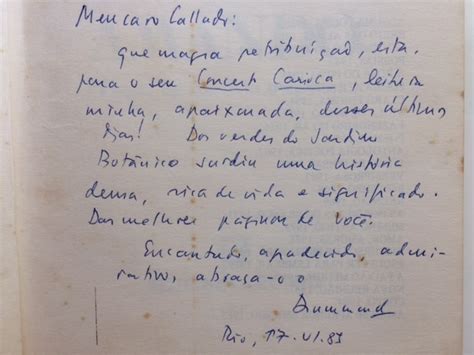 Meu caro Callado:
que magra retribuição, esta,
para o seu Concerto Carioca, leitura
minha, apaixonada, desses últimos
dias! Dos verdes do Jardim
Botânico surdiu uma história
densa, rica de vida e significado.
Das melhores páginas de você.
Encantado, agradecido, admi-
rativo, abraça-o o
Drummond
Rio, 17.VI.85